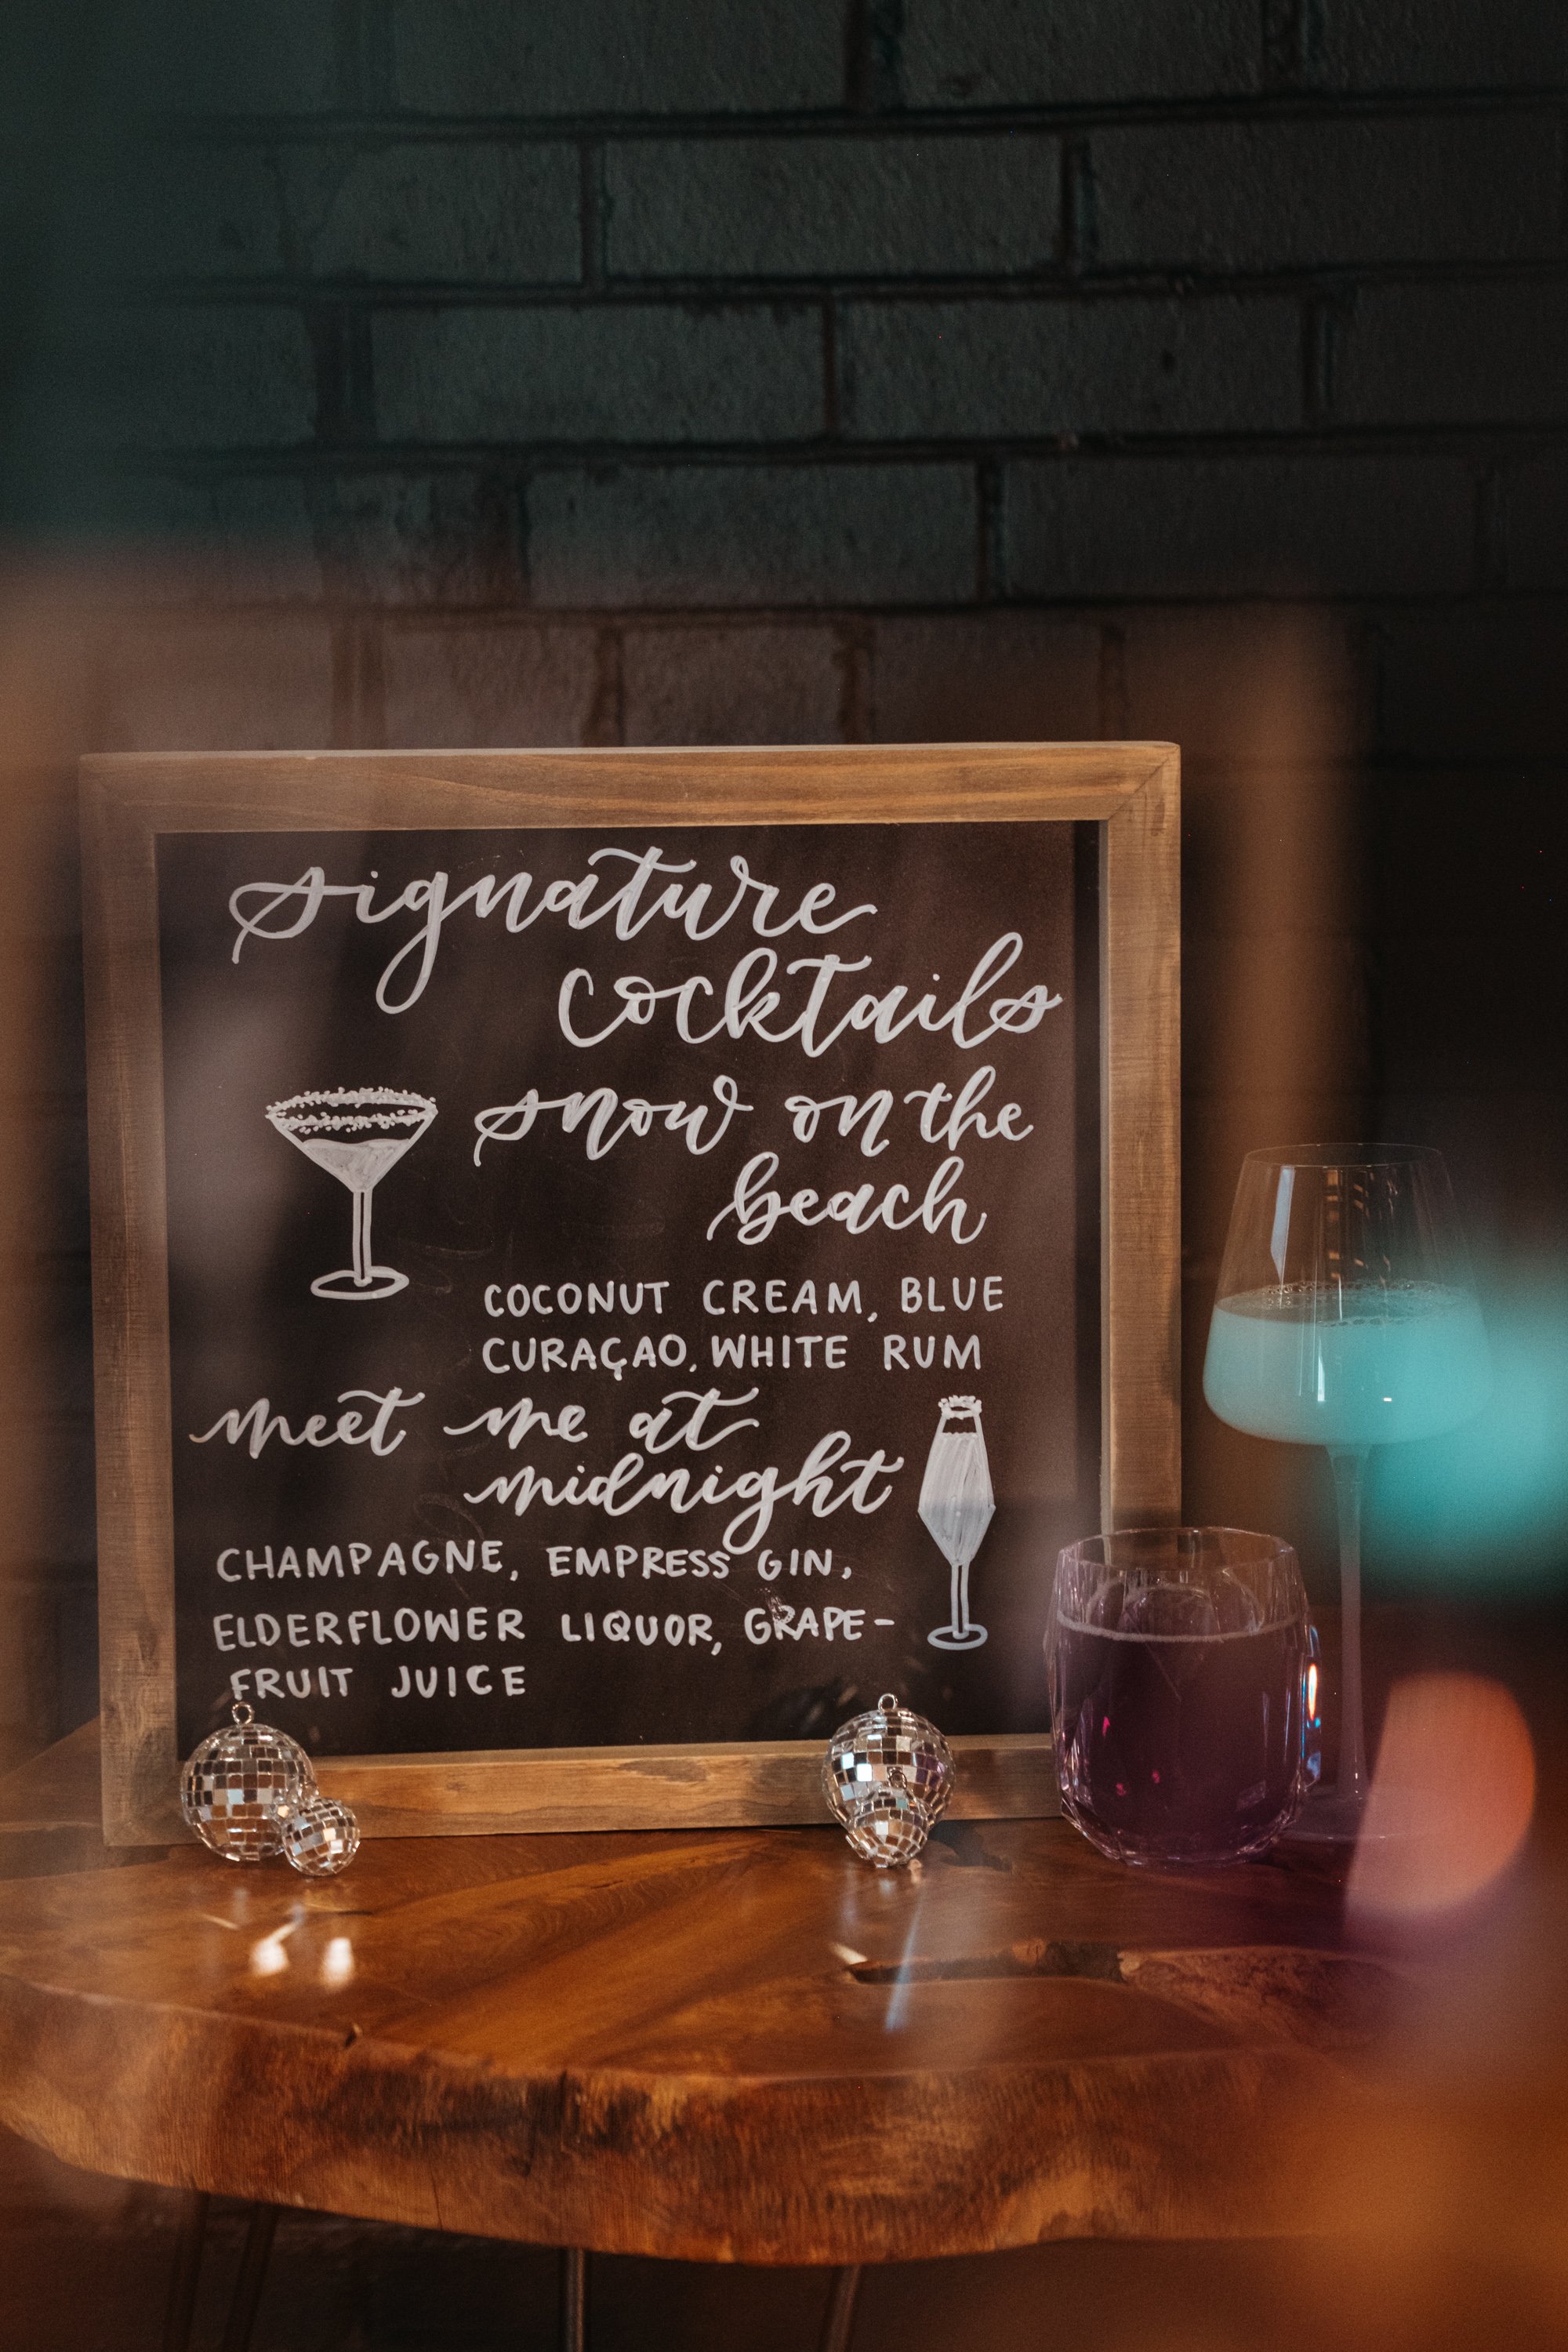 signature
cocktails
snow on the
beach
COCONUT CREAM, BLUE
CURAÇAO, WHITE RUM
meet me at
midnight
CHAMPAGNE, EMPRESS GIN,
ELDERFLOWER LIQUOR, GRAPE-
FRUIT JUICE